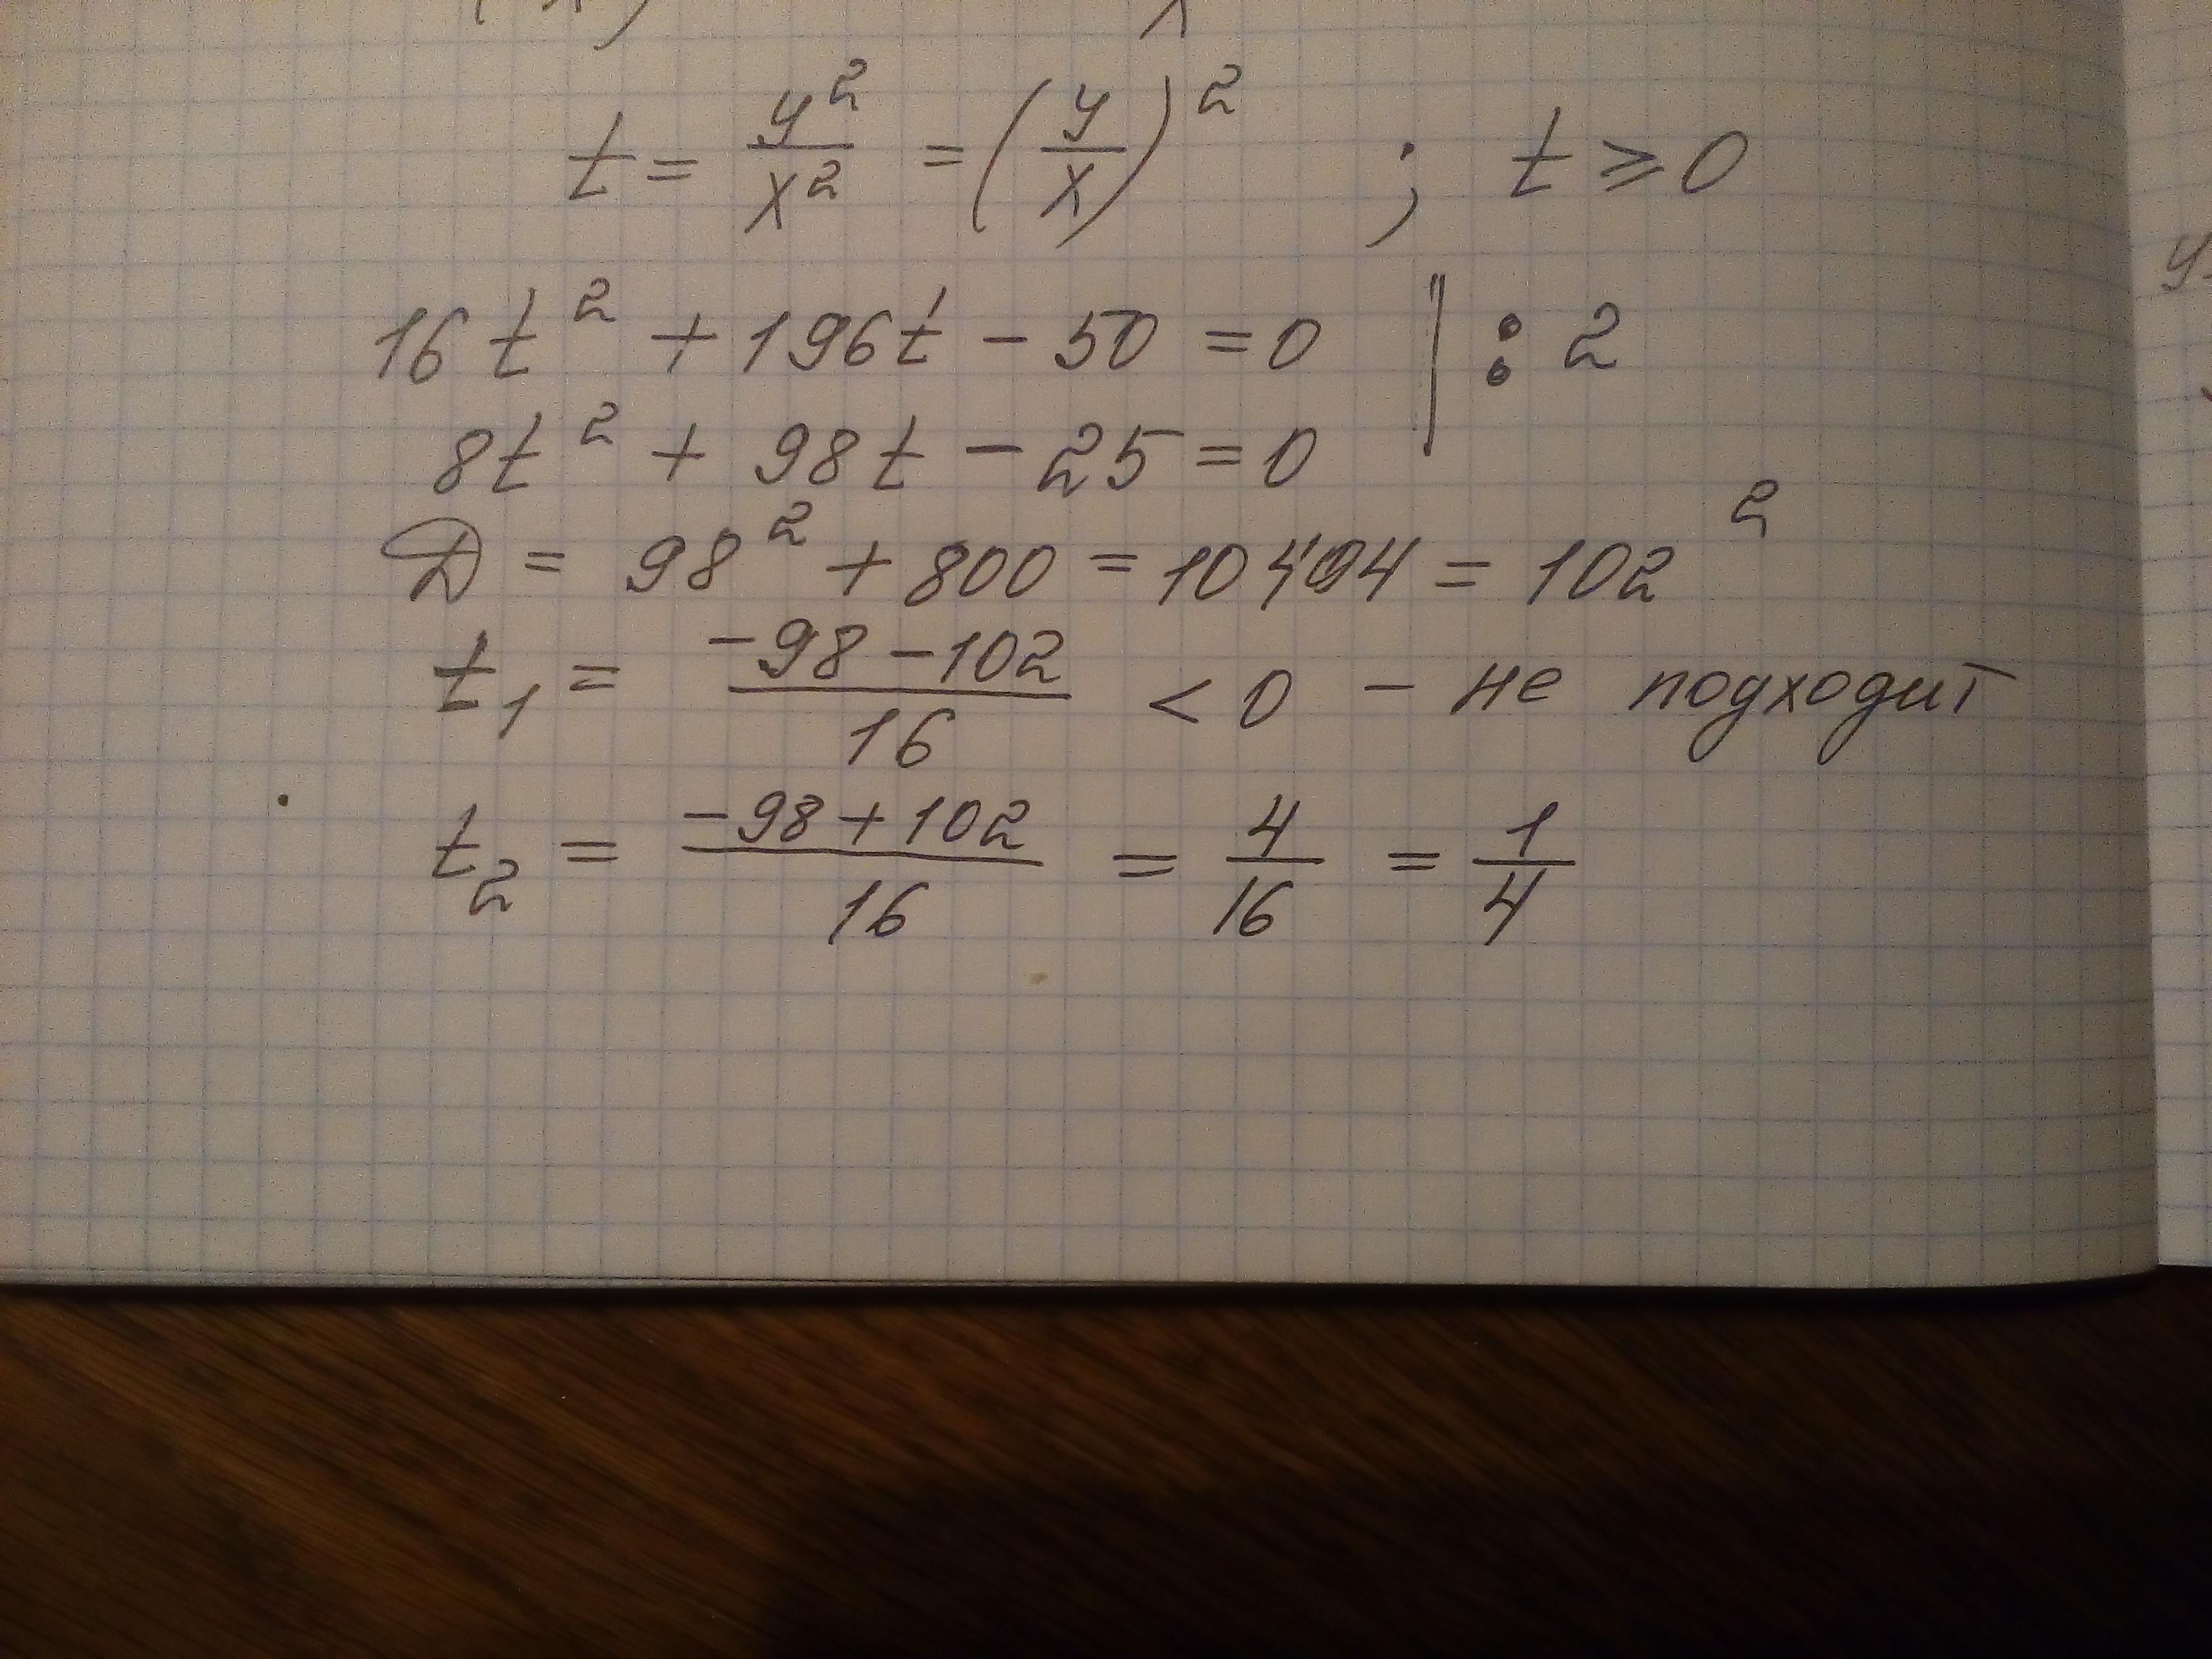 t = y²/x² = (y/x)² ; t ⩾ 0
16t² + 196t − 50 = 0 | : 2
8t² + 98t − 25 = 0
D = 98² + 800 = 10404 = 102²
t₁ = (−98 − 102)/16 < 0 − не подходит
t₂ = (−98 + 102)/16 = 4/16 = 1/4